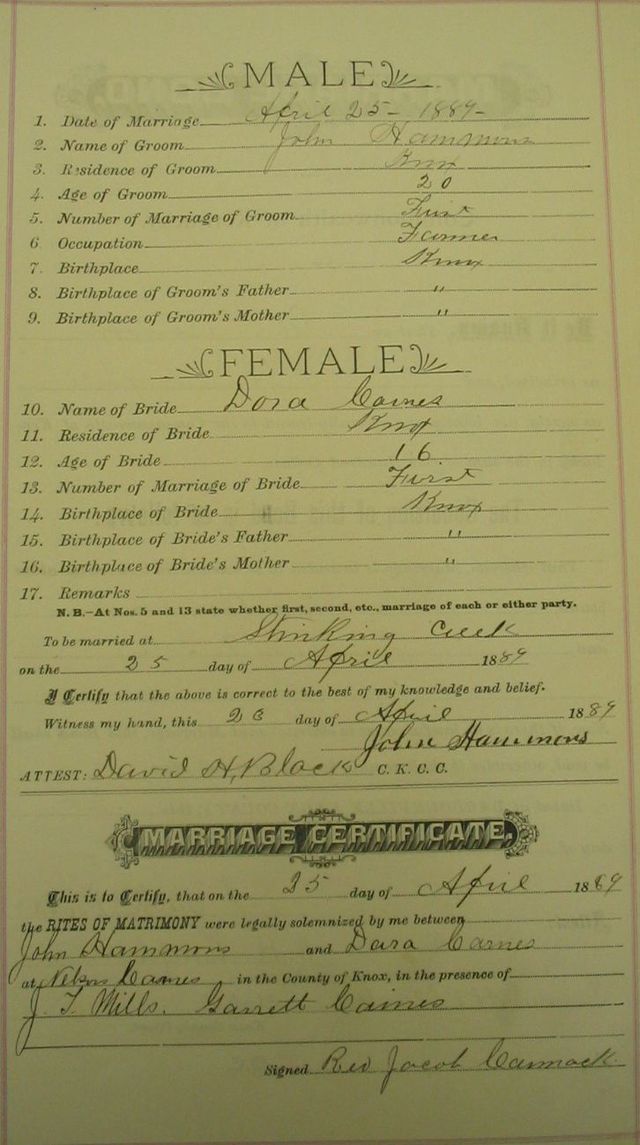 MALE
1. Date of Marriage April 25- 1889-
2. Name of Groom John Hammons
3. Residence of Groom Knox
4. Age of Groom 20
5. Number of Marriage of Groom First
6. Occupation Farmer
7. Birthplace Knox
8. Birthplace of Groom's Father "
9. Birthplace of Groom's Mother "
FEMALE
10. Name of Bride Dora Carnes
11. Residence of Bride Knox
12. Age of Bride 16
13. Number of Marriage of Bride First
14. Birthplace of Bride Knox
15. Birthplace of Bride's Father "
16. Birthplace of Bride's Mother "
17. Remarks
N. B.—At Nos. 5 and 13 state whether first, second, etc., marriage of each or either party.
To be married at Stinking Creek
on the 25 day of April 1889
I Certify that the above is correct to the best of my knowledge and belief.
Witness my hand, this day of April 1889
John Hammons
ATTEST: David H, Black C. K. C. C.
MARRIAGE CERTIFICATE.
This is to Certify, that on the 25 day of April 1889
the RITES OF MATRIMONY were legally solemnized by me between
John Hammons and Dara Carnes
at Carnes in the County of Knox, in the presence of
J. T. Mills. Garrett Carnes
Signed Rev Jacob Carmack